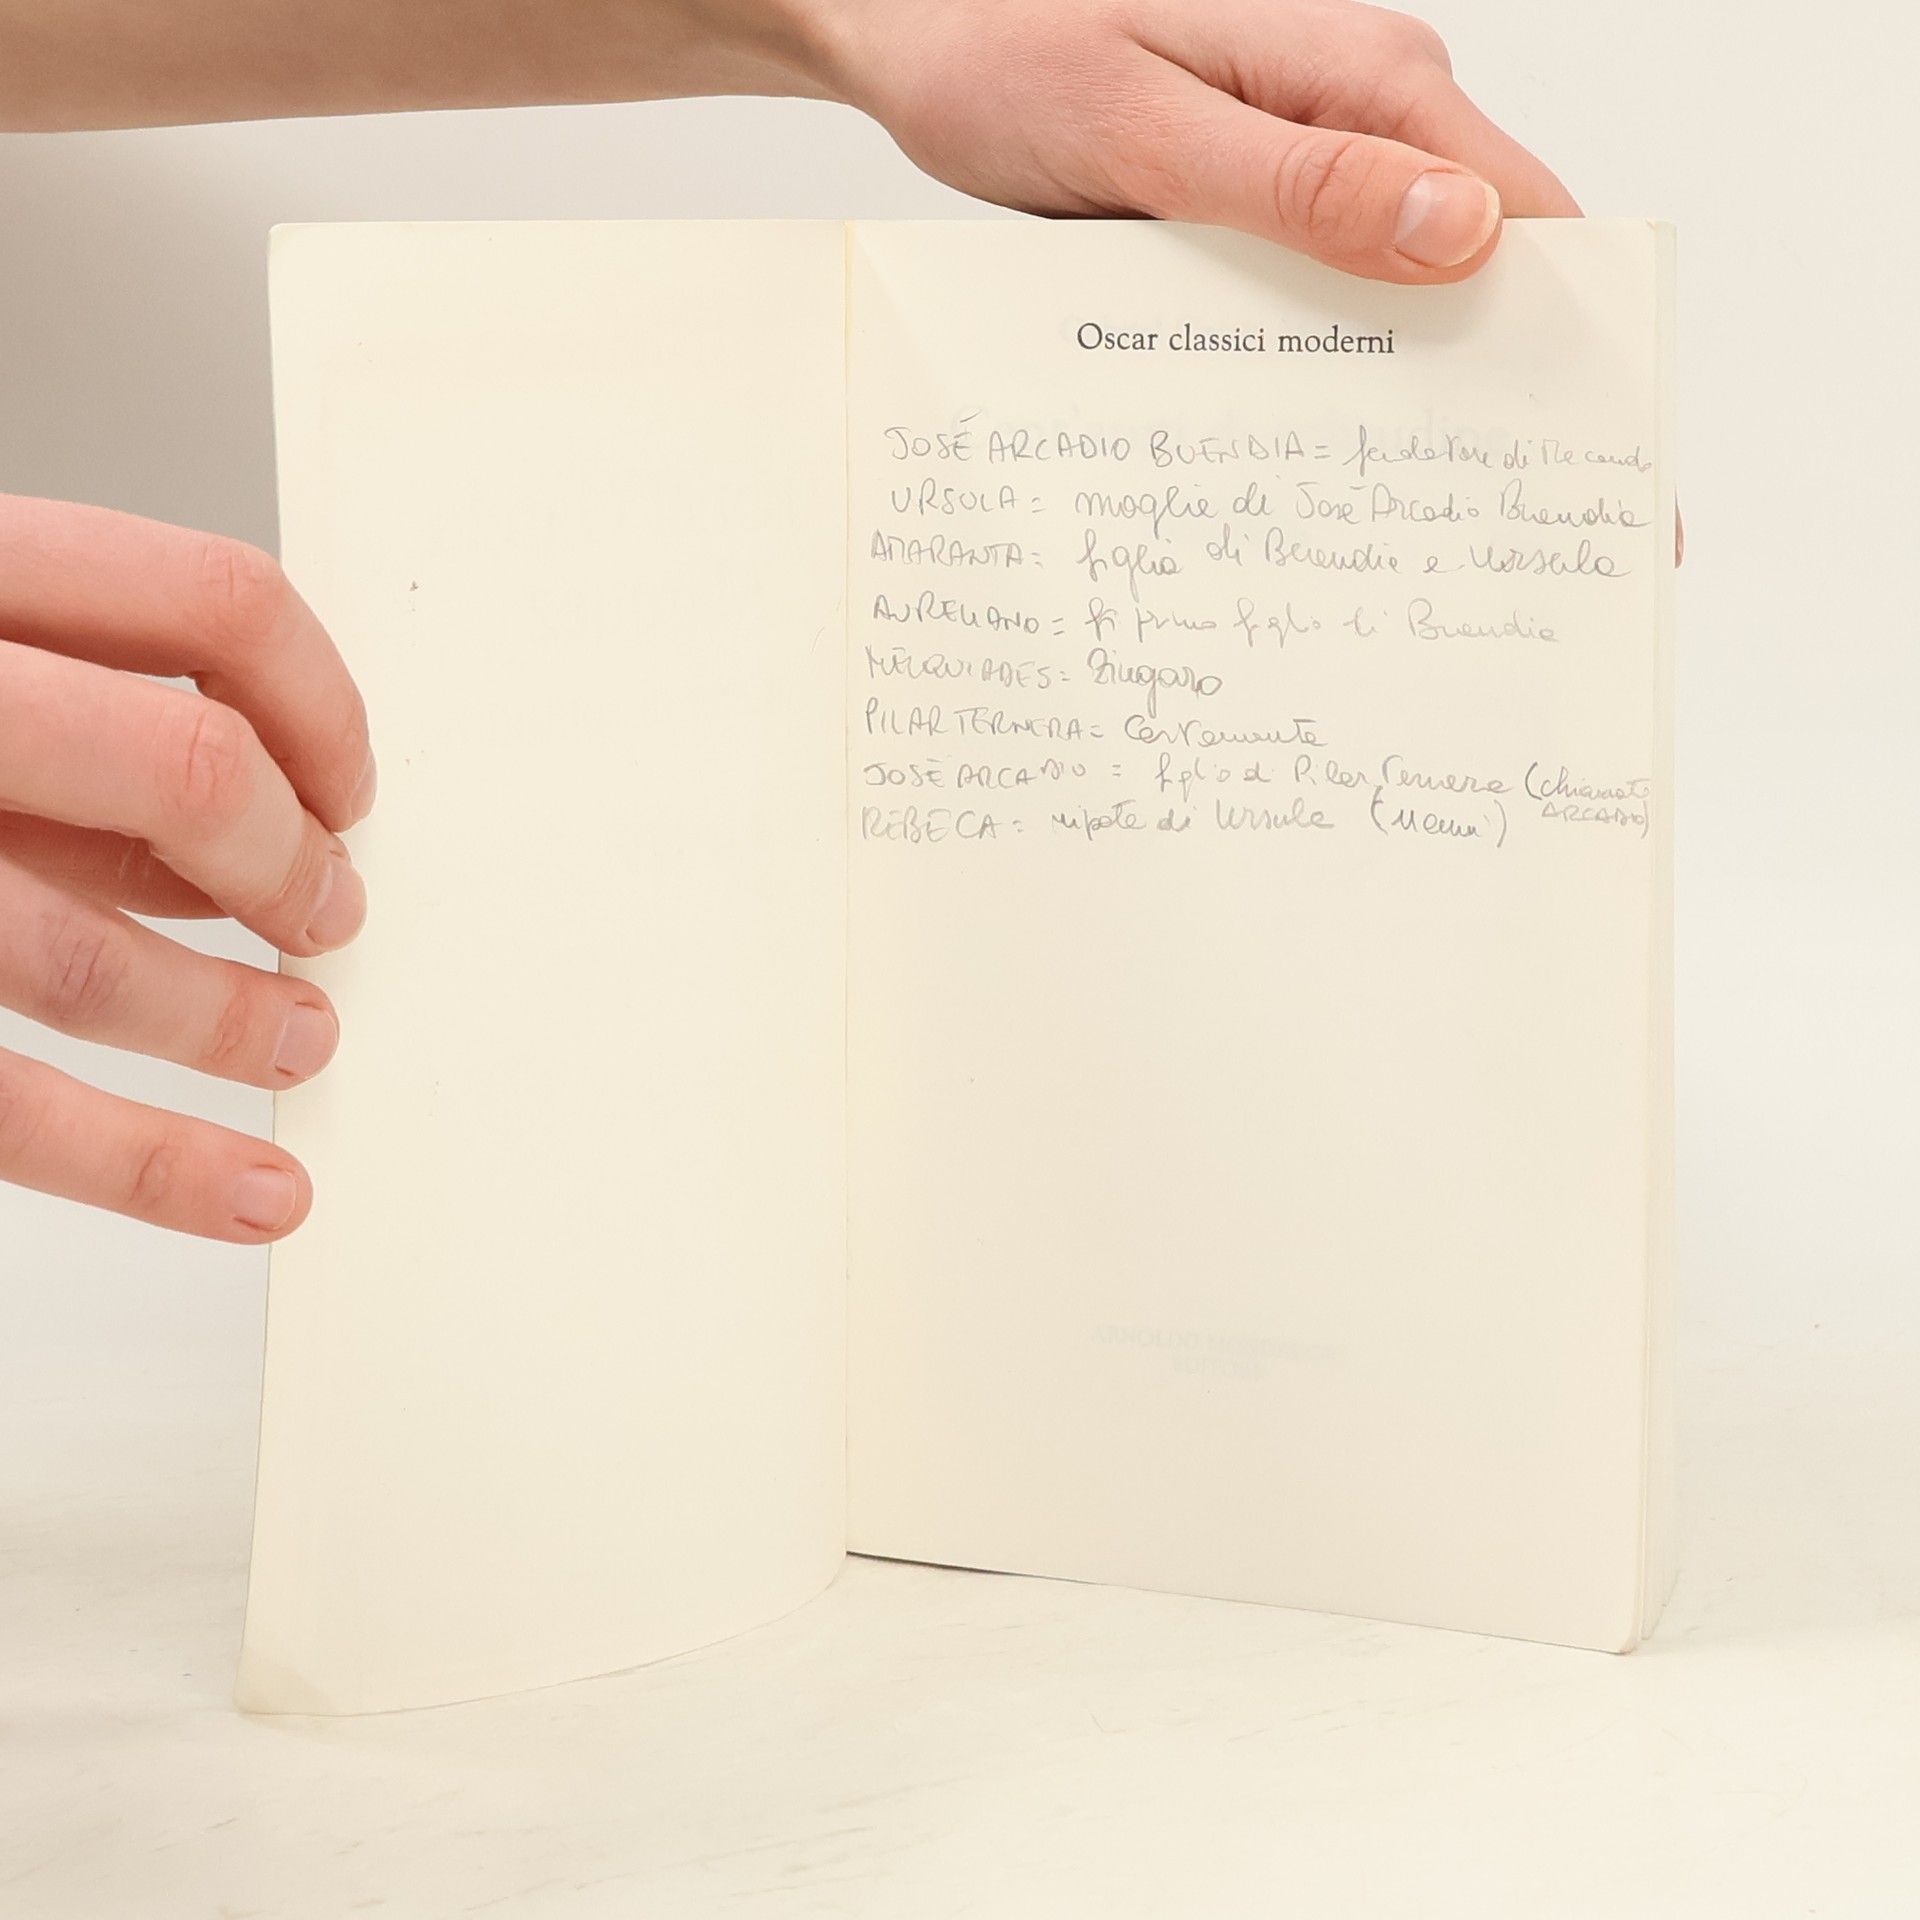 Oscar classici moderni
JOSÉ ARCADIO BUENDIA = fondatore di Macondo
URSULA = moglie di José Arcadio Buendia
AMARANTA = figlia di Buendia e Ursula
AURELIANO = primo figlio di Buendia
MELQUIADES = Zingaro
PILAR TERNERA = Cartomante
JOSÈ ARCADIO = figlio di Pilar Ternera (chiamato
ARCADIO)
REBECA = nipote di Ursula
ARNOLDO MONDADORI
EDITORE